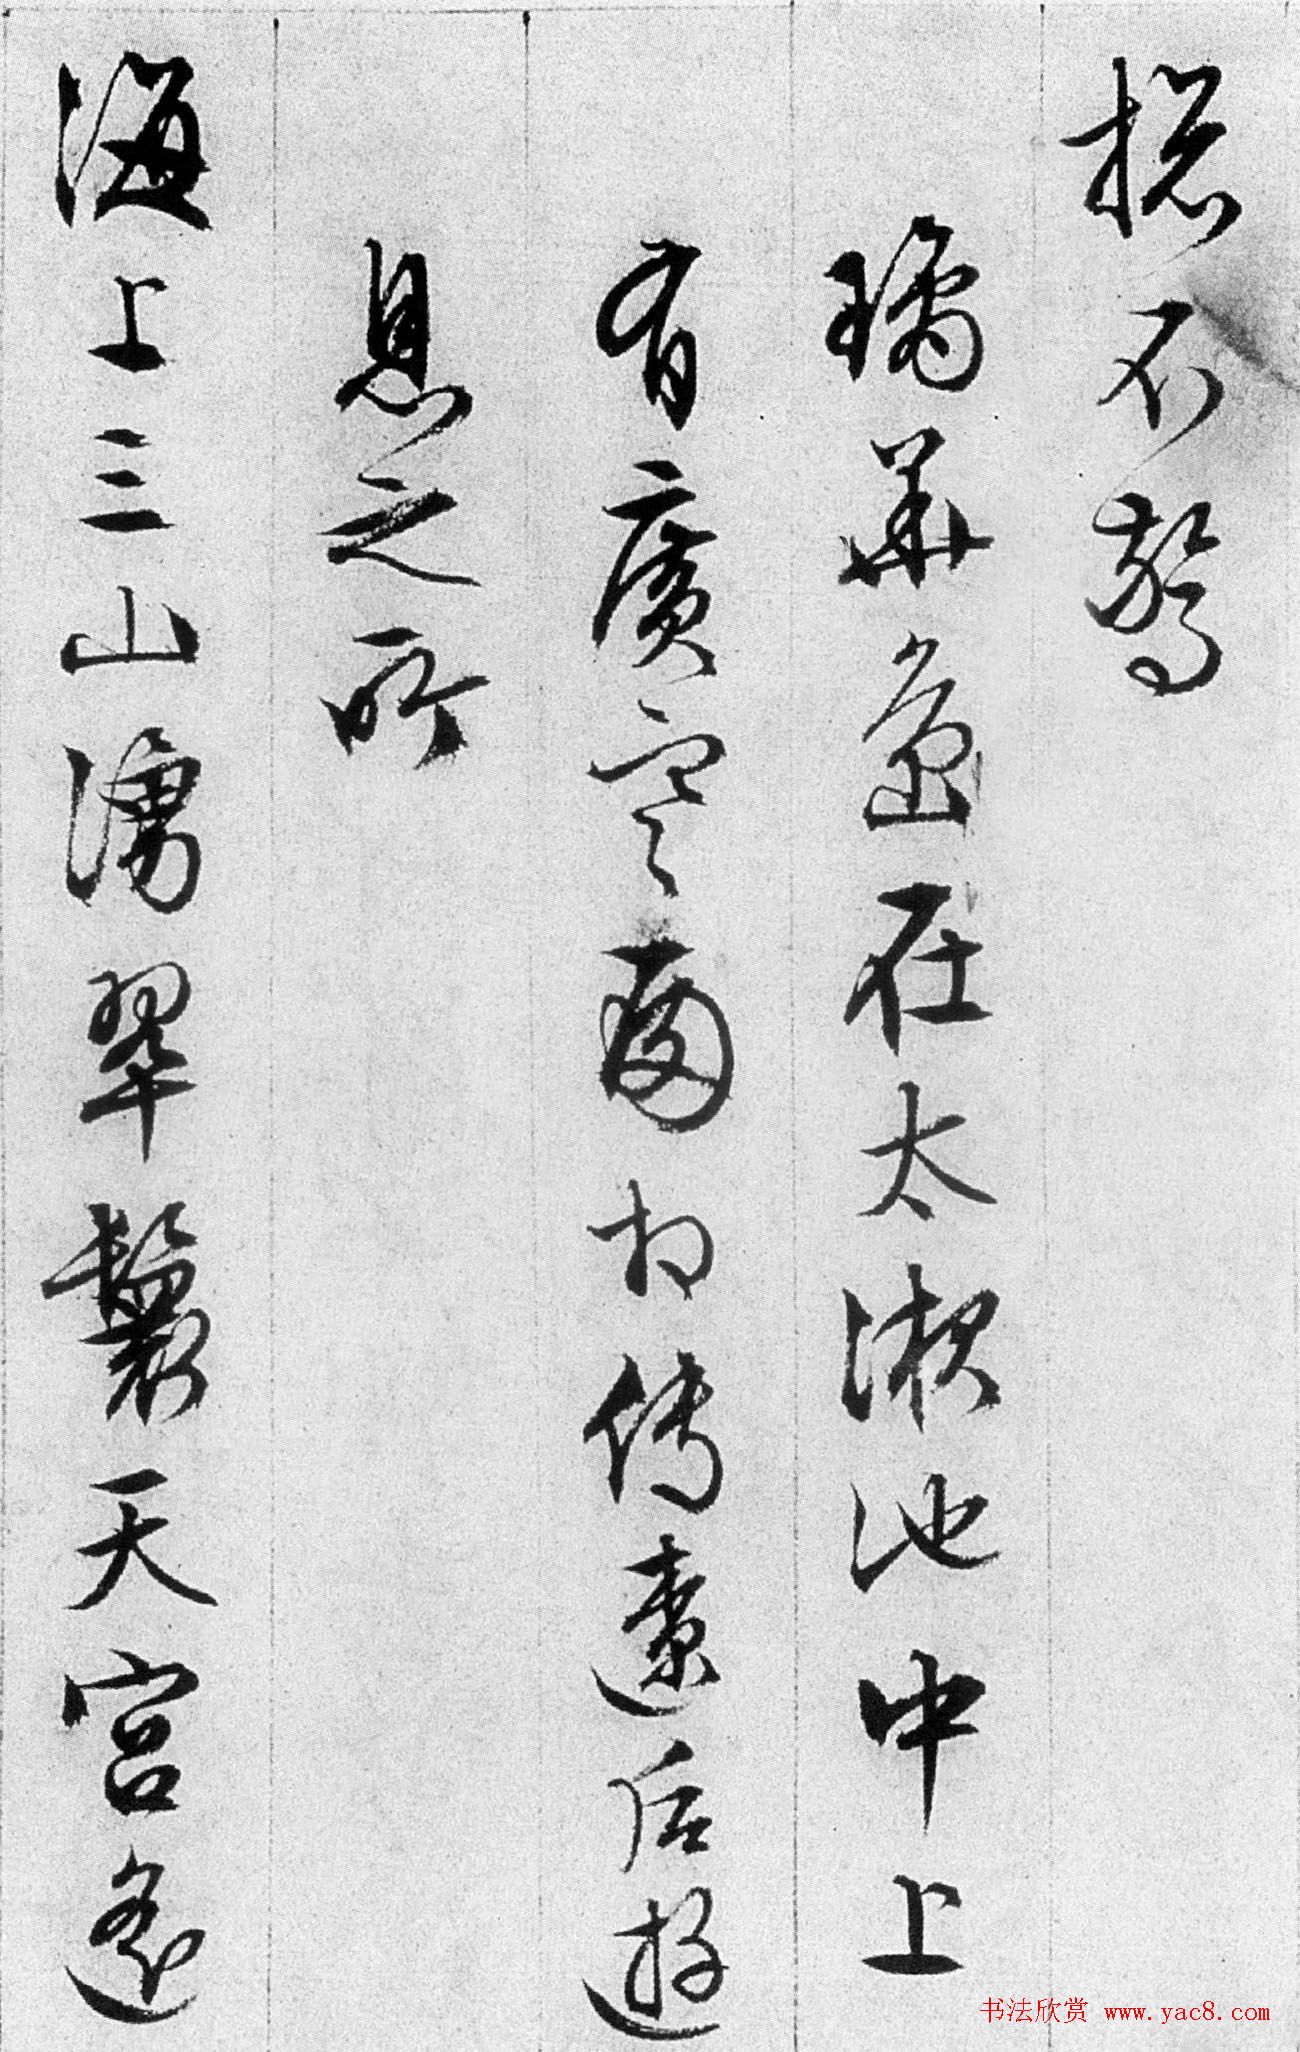 揔不驚
瓊華島在太液池中上
有廣寒殿相傳遼后遊
息之所
海上三山湧翠鬟天宮遙
书法欣赏 www.yac8.com